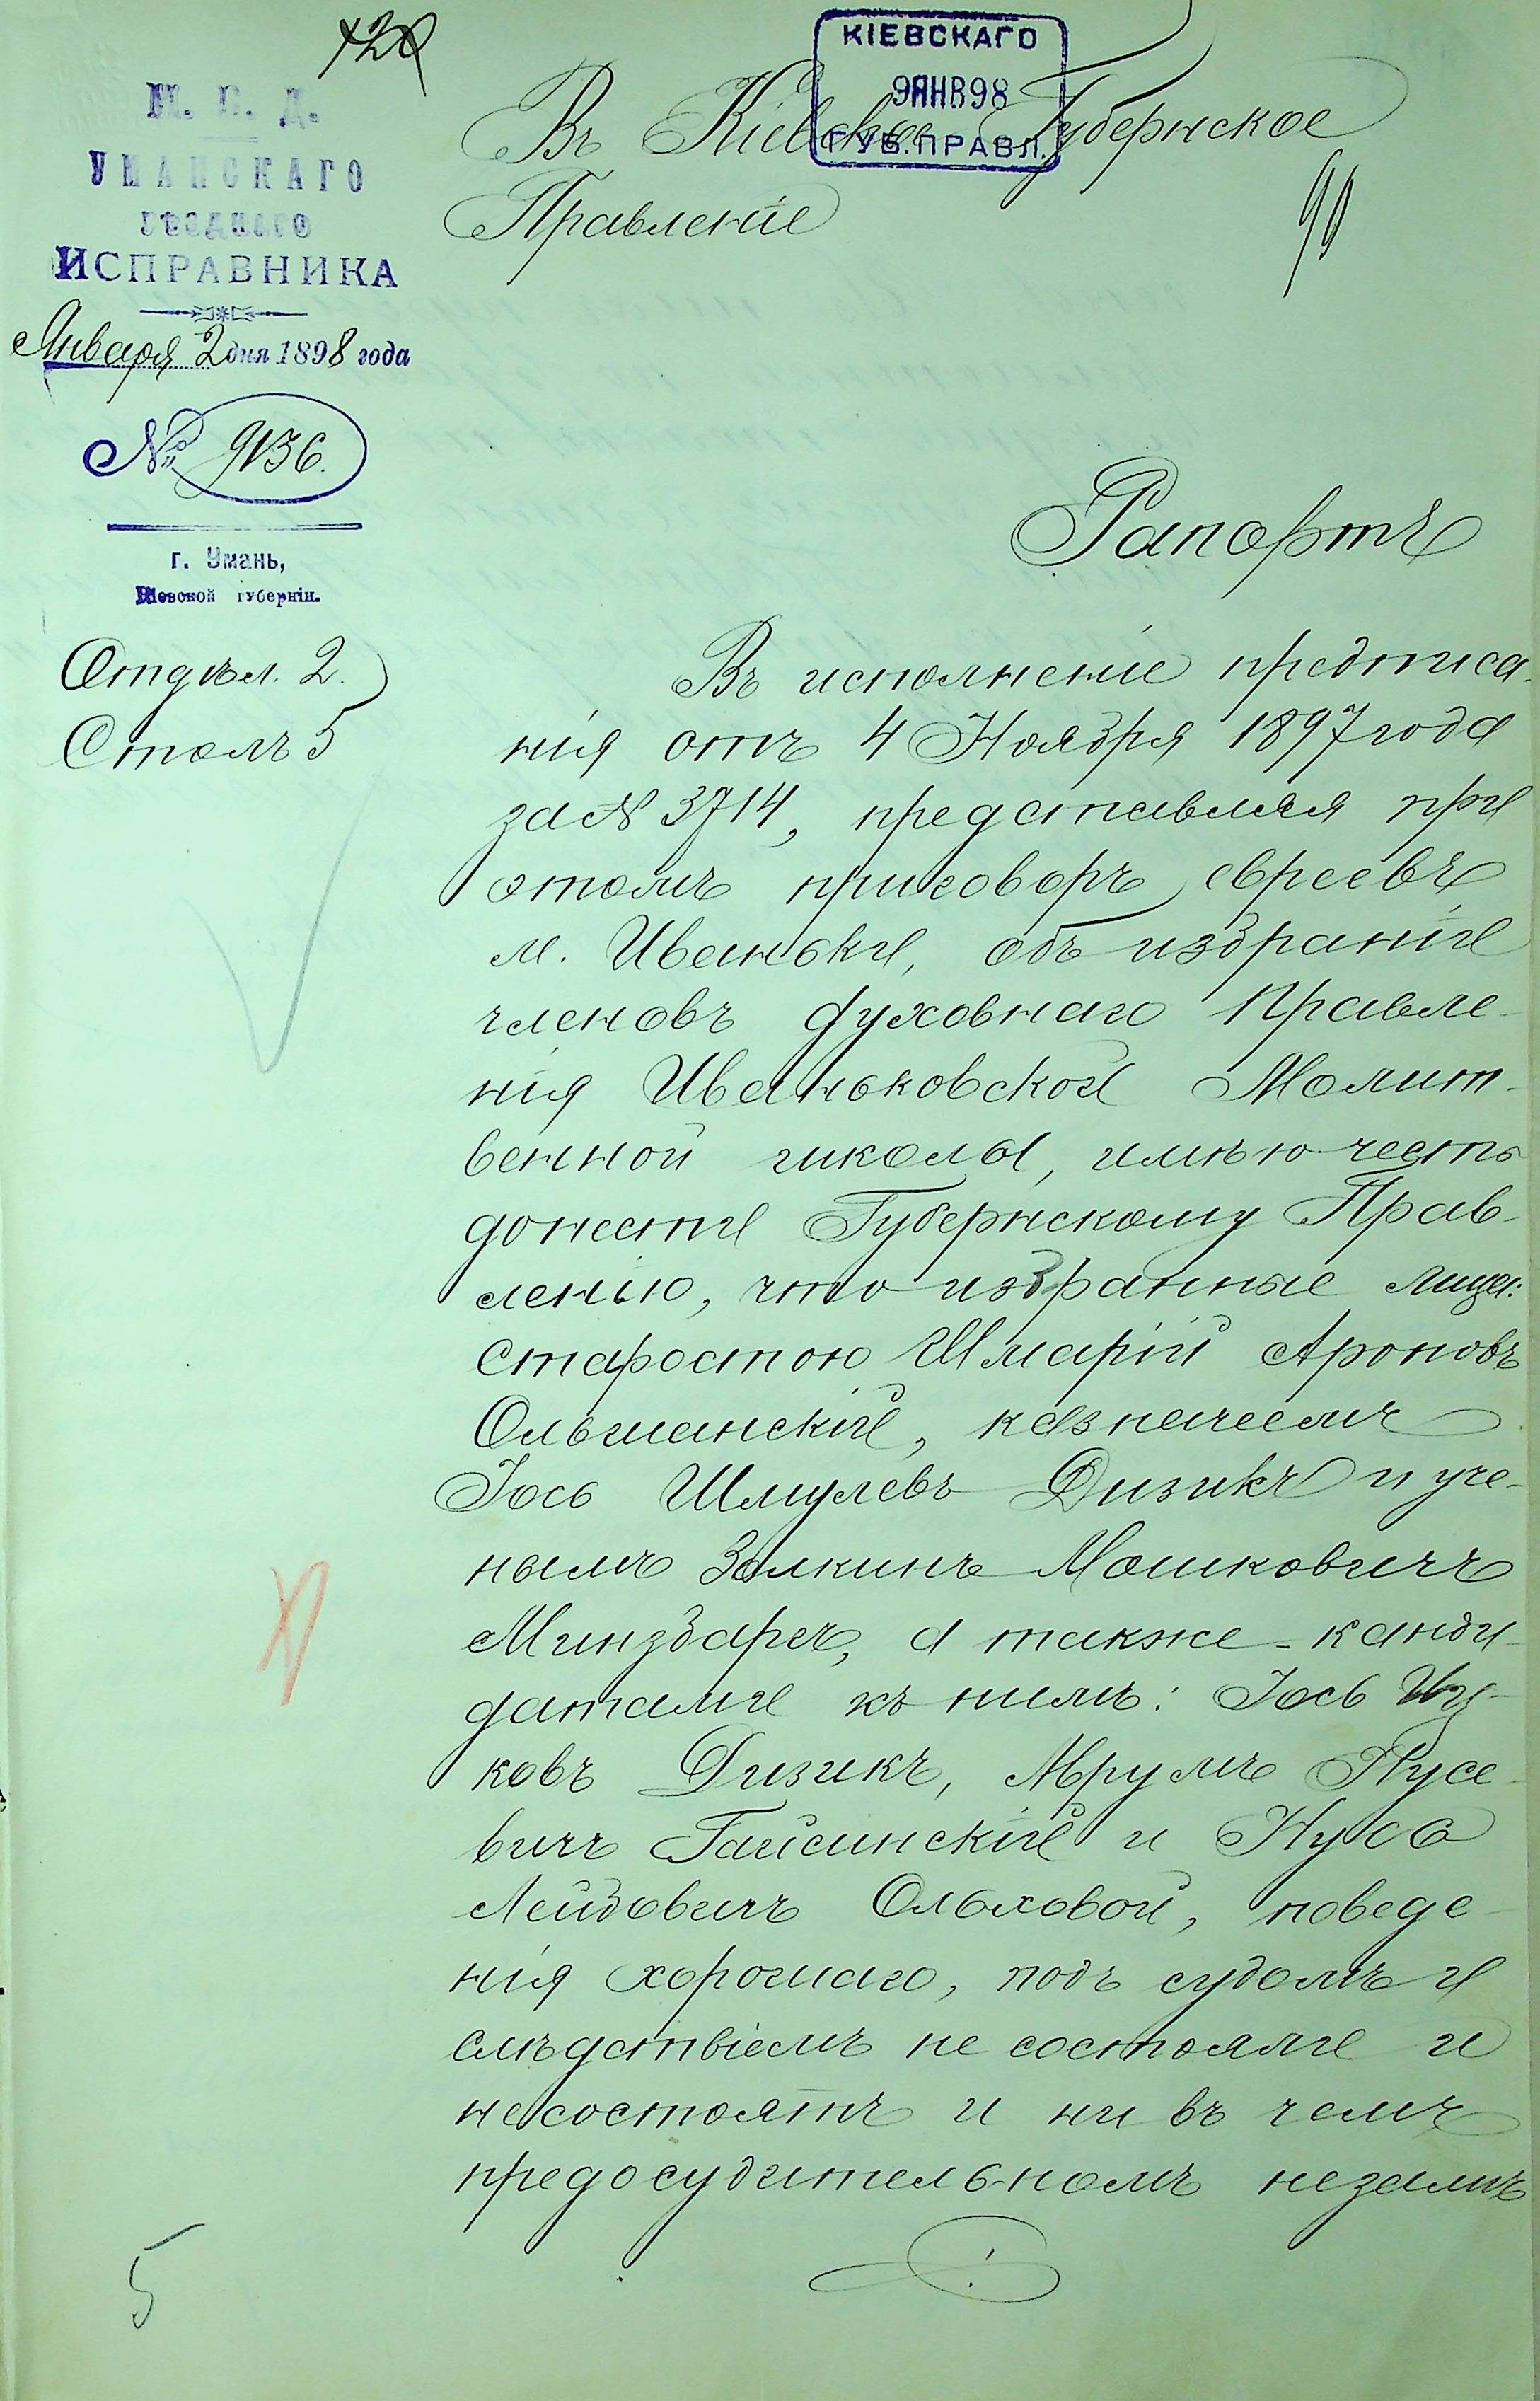 КІЕВСКАГО
9 ЯНВ 98
ГУБ. ПРАВЛ.
М. В. Д.
УМАНСКАГО
УѢЗДНАГО
ИСПРАВНИКА
Января 2 дня 1898 года
№ 9136.
г. Умань,
Кіевской губерніи.
Отдѣл. 2.
Столъ 5
Въ Кіевское Губернское
Правленіе
90
Рапортъ
Въ исполненіе предписа-
нія отъ 4 Ноября 1897 года
за № 3714, представляя при
этомъ приговоръ евреевъ
м. Иваньки, объ избраніи
членовъ духовнаго Правле-
нія Иваньковской Молит-
венной школы, имѣю честь
донести Губернскому Прав-
ленію, что избранные лица:
старостою Шмарій Ароновъ
Ольшанскій, казначеемъ
Іось Шмулевъ Дизикъ и уче-
нымъ Залкинъ Мошковичъ
Минзбаръ, а также канди-
датами къ нимъ: Іось Иц-
ковъ Дизикъ, Аврумъ Нусе-
вичъ Гайсинскій и Нусъ
Лейбовичъ Ольховой, поведе-
нія хорошаго, подъ судомъ и
слѣдствіемъ не состояли и
не состоятъ и ни въ чемъ
предосудительномъ незамѣ
5